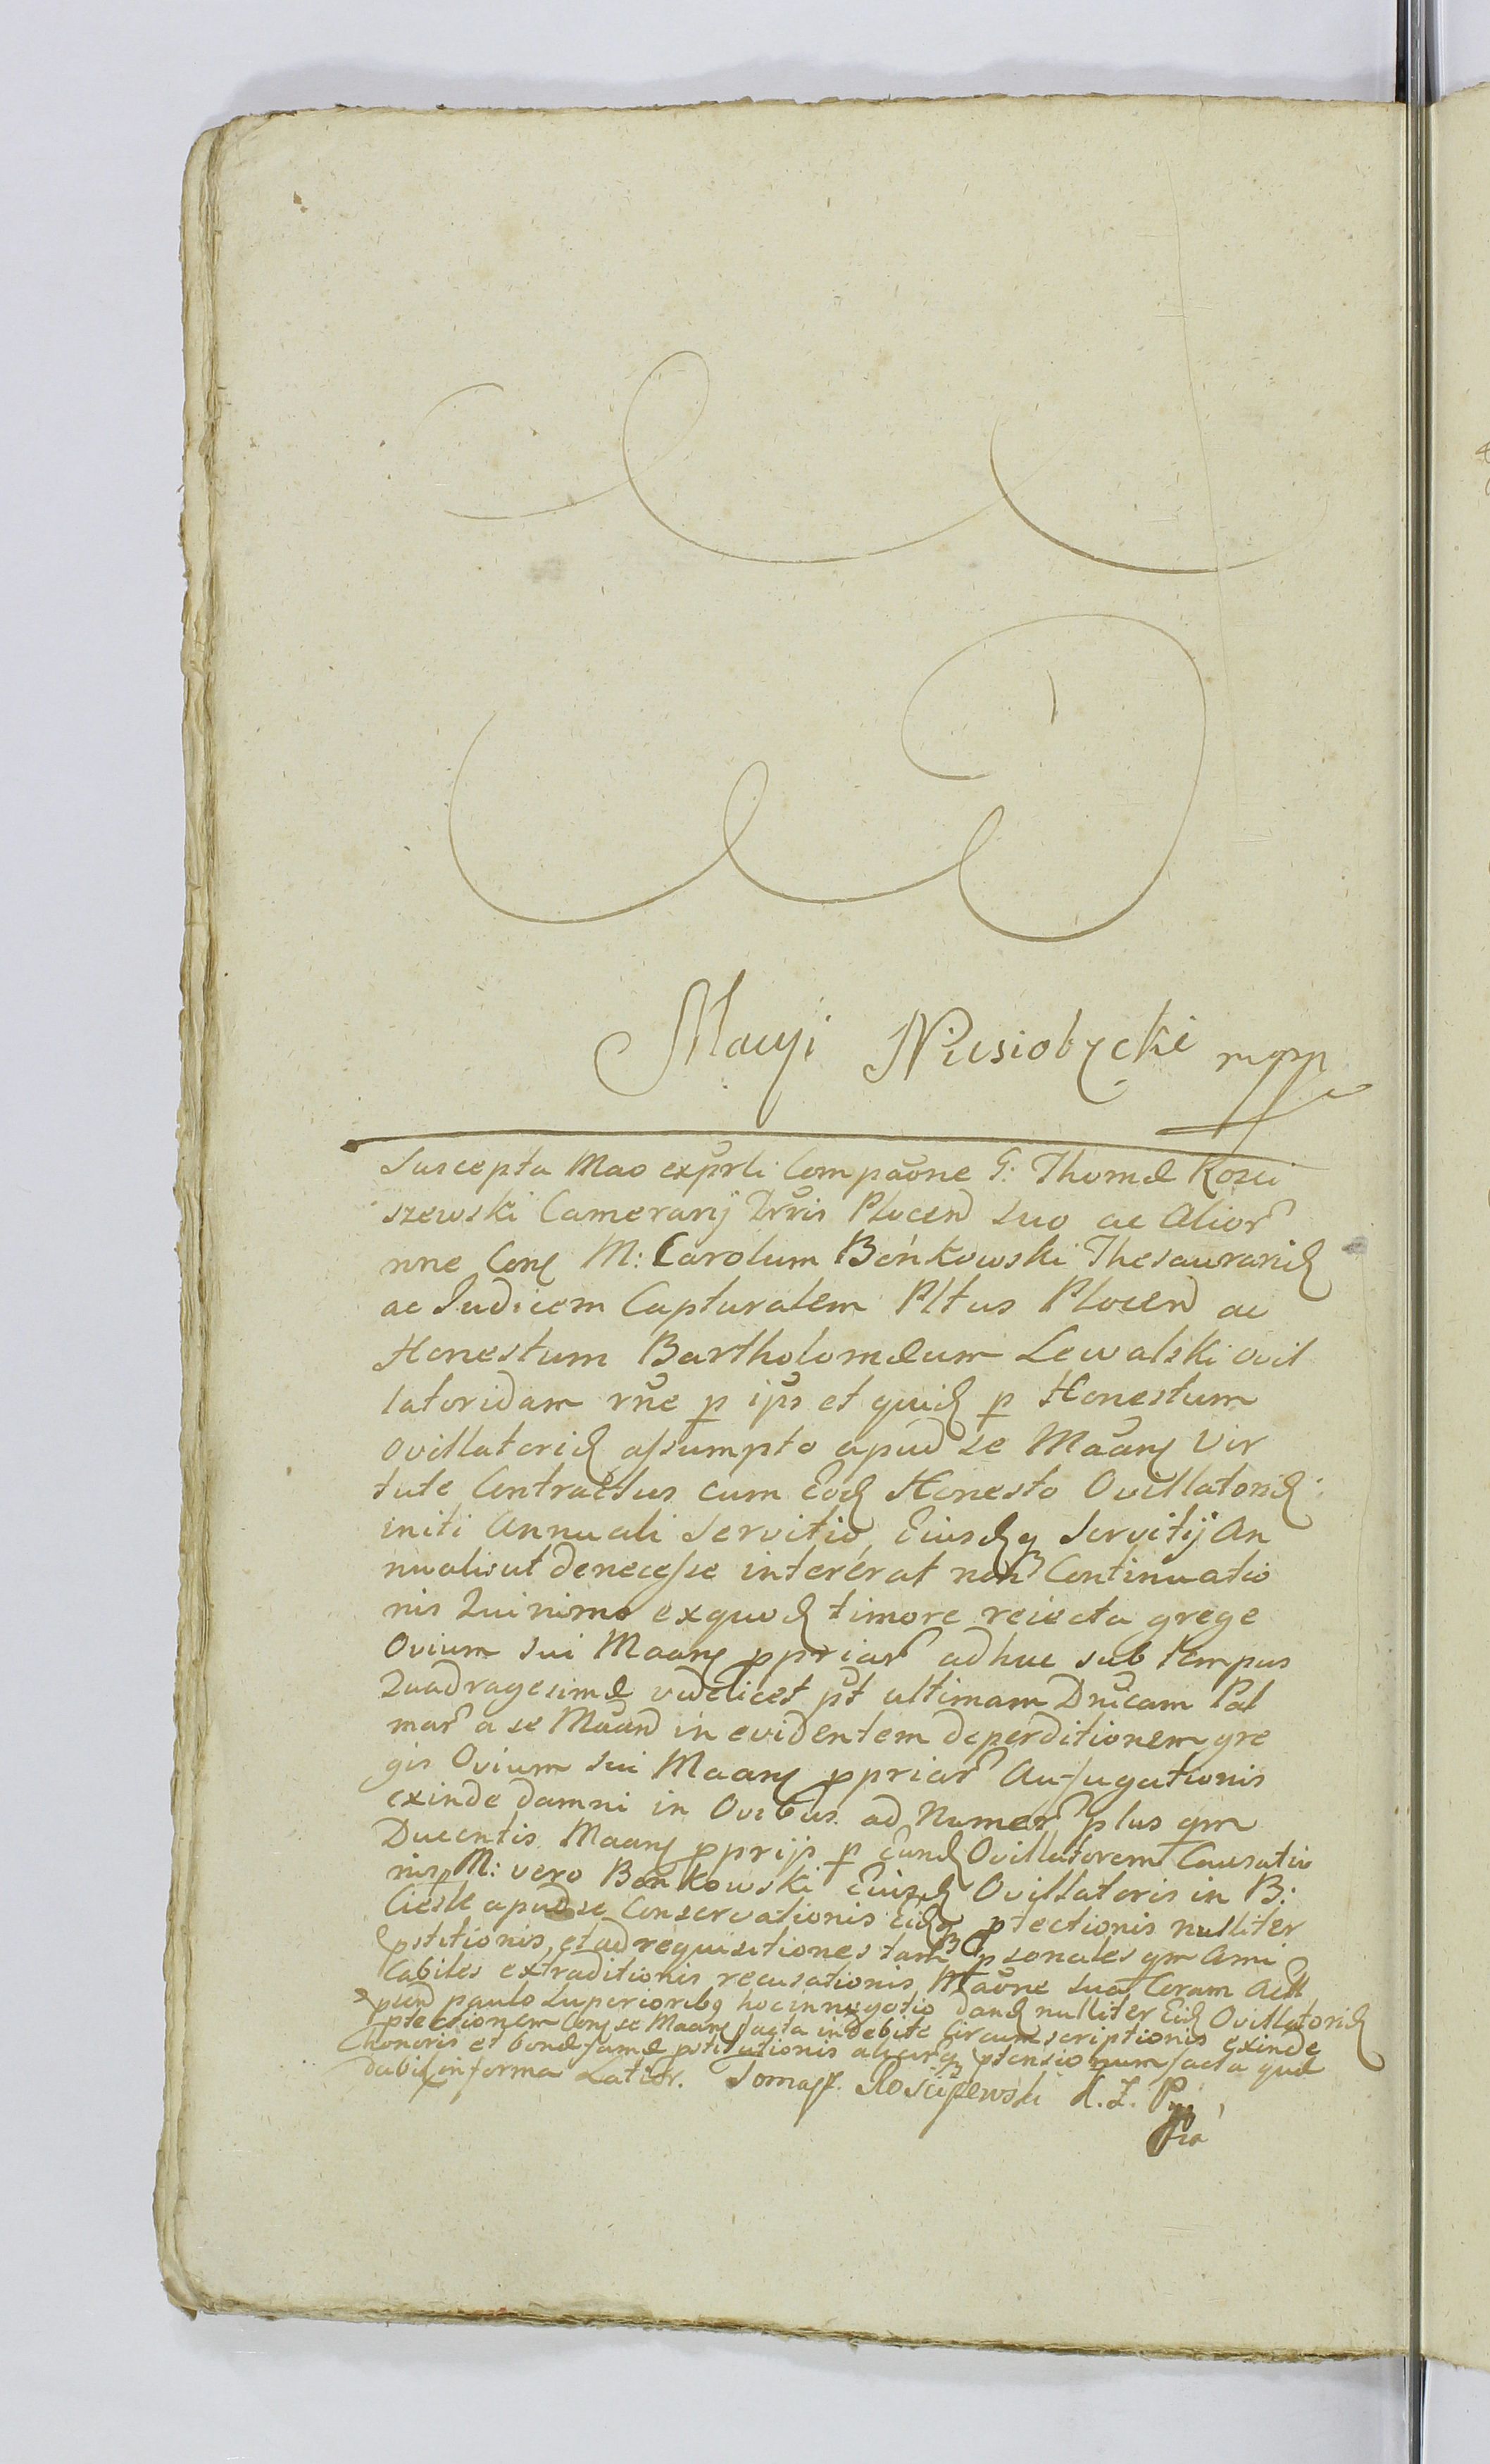 Macyi Niesiobęcki mpp
Suscepta Mao exprli Compaone G: Thomæ Kości
szewski Camerarij Drris Plocen suo ac Alior
nne Con M: Carolum Bońkowski Thesaurariu
ac Judicem Capturalem Pltus Plocen ac
Honestum Bartholomæum Lewalski ovil
latoridam rne p ips et quid p Honestum
Ovillatorid assumpto apud se Maan Vir
tute Contractus cum Eod Honesto Ovillatorid
initi Annuali Servitio, Eiusdq Servitij An
nualis ut denecesse intererat non Continuatio
nis Quinimo exquod timore reiecta grege
Ovium sui Maan ppriar adhuc sub tempus
Quadragesimæ videlicet pt ultimam Dnicam Pal
mar a se Maan in evidentem deperditionem gre
gis Ovium sui Maan ppriar Aufugationis
exinde damni in Ovibus ad Numer plus qm
Ducentis Maan pprijs p Eund Ovillatorem Causatio
nis, M: vero Bońkowski Eiusd Ovillatoris in B:
Ciesle apud se Conservationis Eidq ptectionis nulliter
pstitionis, et ad requisitiones tam psonales qm Ami
cabiles extraditionis recusationis Maone sua Coram Actt
psen paulo Superioribq hocinnegotio dand nulliter Eid Ovillatorid
ptectionem Con se Maan facta indebite Circumscriptionis exinde
honoris et bonæ famæ pstitutionis aliarq ptensionum facta quæ
dabit informa Latior. Tomasz Kościszewski K. Z. P